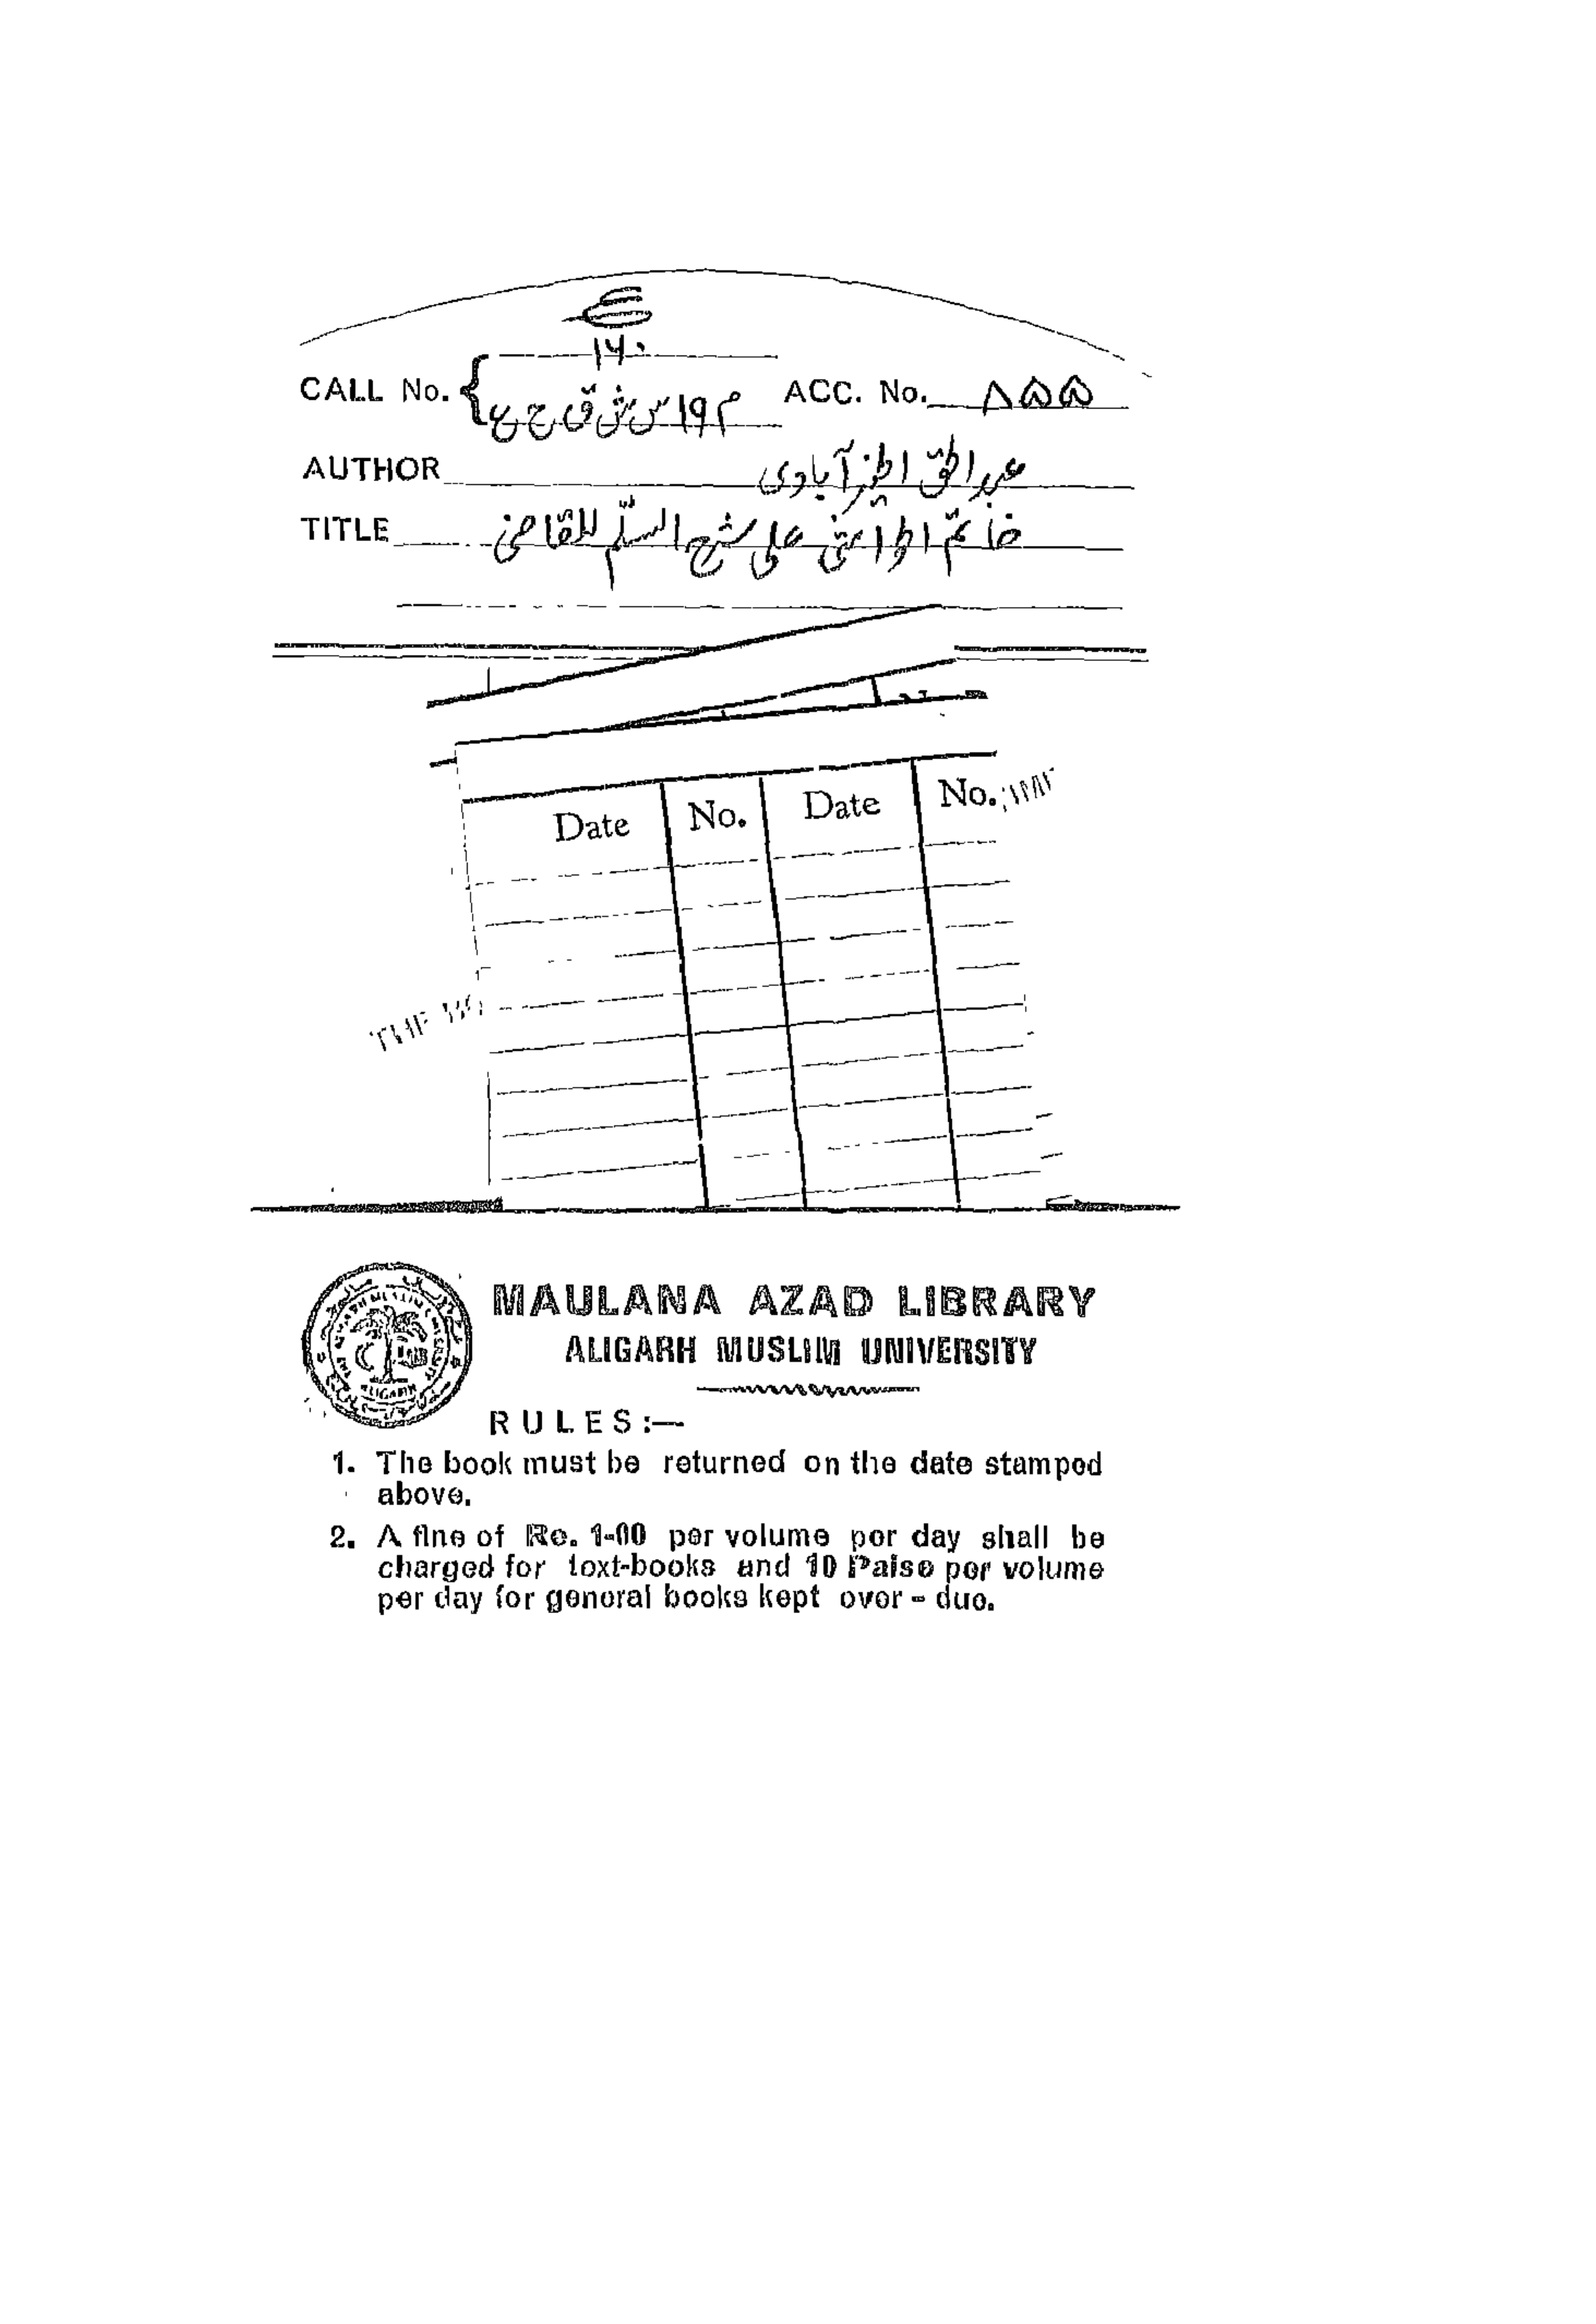 ۱۶۰
CALL No. { م ۱۹ س ش ق ح ع ACC. No. ۸۵۵
AUTHOR عبدالحق الخیرآبادی
TITLE خاتم الحواشی علی شرح السلّم للقاضی
Date No. Date No.
MAULANA AZAD LIBRARY
ALIGARH MUSLIM UNIVERSITY
RULES:—
1. The book must be returned on the date stamped
above.
2. A fine of Re. 1-00 per volume per day shall be
charged for text-books and 10 Paise per volume
per day for general books kept over - due.